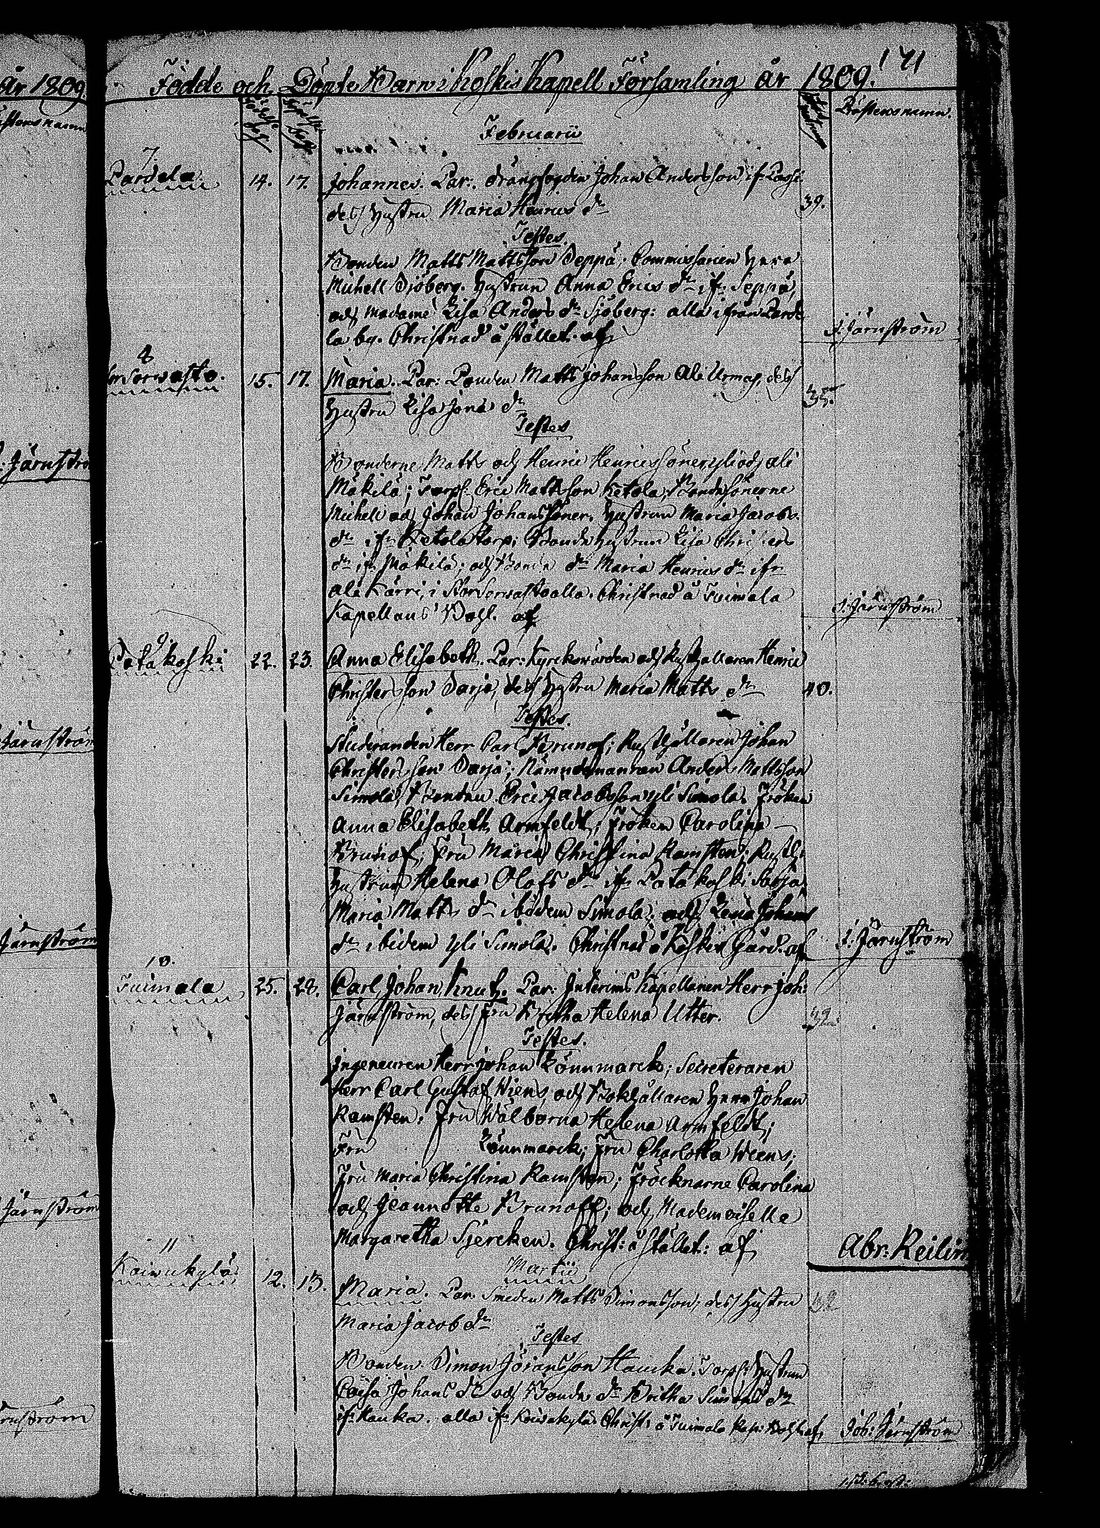 år 1809
171
Födde och Döpte Barn i Koskis Kapell Församling år 1809.
Februarii
Döpftens namn.
7.
Pardela 14. 17. Johannes. Par: drängfogden Johan Andersson if:
dess Hustru Maria Henrics dr 39.
Testes
Bonden Matts Mattsson Seppä; Commissarien Herr
Michell Sjöberg. Hustrun Anna Erics dr if: Seppä,
och Madame Lisa Anders dr Sjöberg: alla ifrån Parde
la by. Christnad å stället. af
J: Järnström
8
15. 17. Maria. Par: Bonden Matts Johansson Ali Urmas, dess
Hustru Lisa Jons dr 35.
Testes
Bönderne Matts och Henric Henricssöner yli och ali
Mäkilä; Torp: Eric Mattsson Ketola, Bondesönerne
Michell och Johan Johanssöner. Hustrun Maria Jacobs
dr if: Ketola torp; Bonde Hustrun Lisa Christers
dr if: Mäkilä; och Bonde dr Maria Henrics dr ifr
ali Kärri, i Christnad å Tuimala
Kapellans Bohl. af
J: Järnström
9.
Patakoski 22. 23. Anna Elisabeth. Par: Kyrkovärden och Rusthållaren Henric
Christersson Sarja, dess Hustru Maria Matts dr 40.
Testes.
Studeranden Herr Carl Brunof; Rusthållaren Johan
Christersson Sarja; Nämndemannen Anders Mattsson
Simola, Bonden Eric Jacobsson yli Simola. Fröken
Anna Elisabeth Armfeldt; Fröken Carolina
Brunof; Fru Maria Christina Ramsten; Rusth:
Hustrun Helena Olofs dr if: Patakoski Sarja
Maria Matts dr ibidem Simola; och Johans
dr ibidem yli Simola. Christnad å Koskis Gård. af
J: Järnström
10.
Tuimala 25. 28. Carl Johan Knut. Par: Interims Kapellanen Herr Joh:
Järnström, dess Fru Britha Helena Utter. 32.
Testes.
Ingeneuren Herr Johan Lönnmarck; Secreteraren
Herr Carl Gustaf Wiens, och Bokhållaren Herr Johan
Ramsten. Fru Walborna Helena Armfeldt;
Fru Lönnmarck; Fru Charlotta Wiens;
Fru Maria Christina Ramsten; Fröcknarne Carolina
och Jeannette Brunoff; och Mademoiselle
Margaretha Sjercken. Christ: å stället: af
Abr: Reilin
11
Koivukylä 12. 13. Martii
Maria. Par: Smeden Matts Simonsson; dess Hustru
Maria Jacobs dr
Testes
Bonden Simon Jöransson Hauka. Torp: Hustrun
Caisa Johans dr och Bonde dr Britha Simons dr
if: Hauka. alla if: Koivukylä Christ: å Tuimala Kap: Bohl af
Joh: Järnström